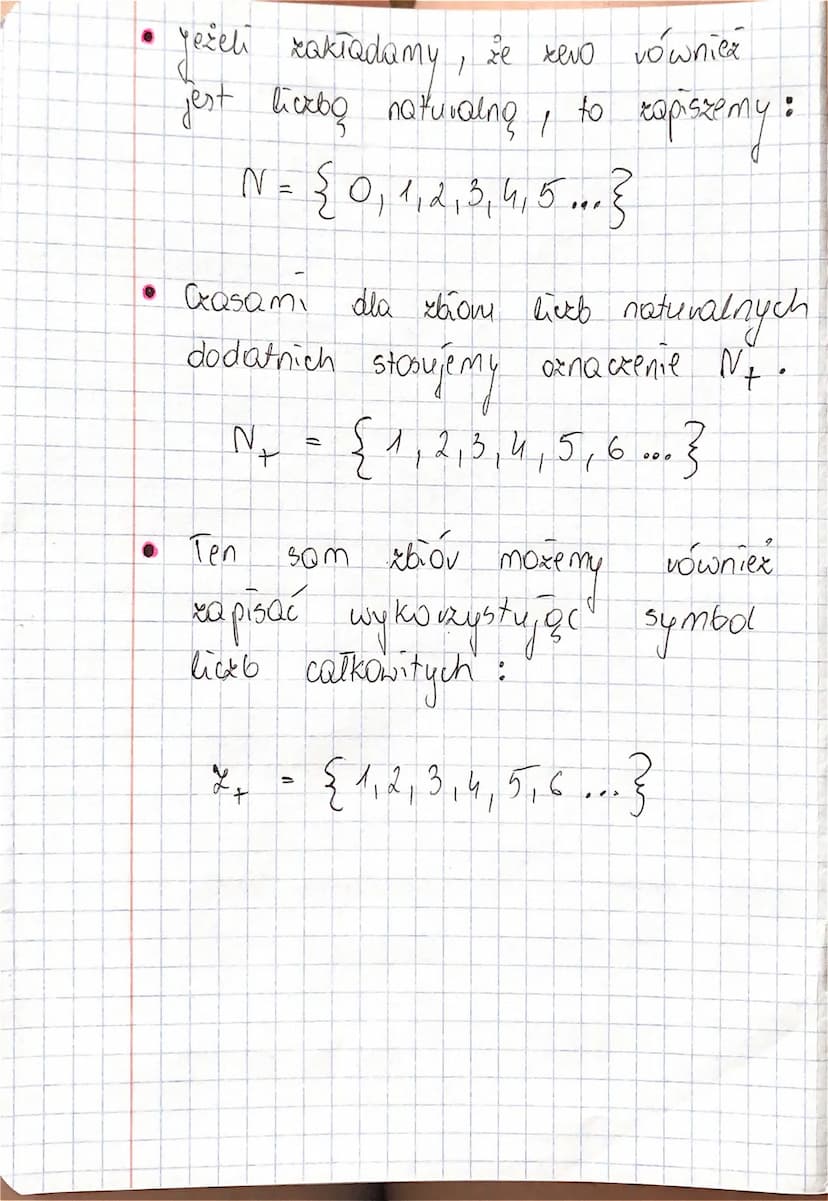 • Jeżeli zakładamy, że zero również
jest liczbą naturalną, to zapiszemy:
N = { 0, 1, 2, 3, 4, 5 ...}
• Czasami dla zbioru liczb naturalnych
dodatnich stosujemy oznaczenie N₊.
N₊ = { 1, 2, 3, 4, 5, 6 ...}
• Ten sam zbiór możemy również
zapisać wykorzystując symbol
liczb całkowitych:
Z₊ = { 1, 2, 3, 4, 5, 6 ...}